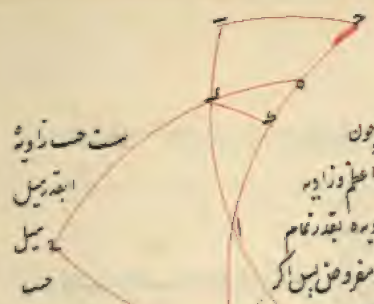 ست حسب زاویهٔ
ابقدر میل
میل
حسب
چون
اعظم و زاویه
ویره بقدر تمام
مفروض پس اکر